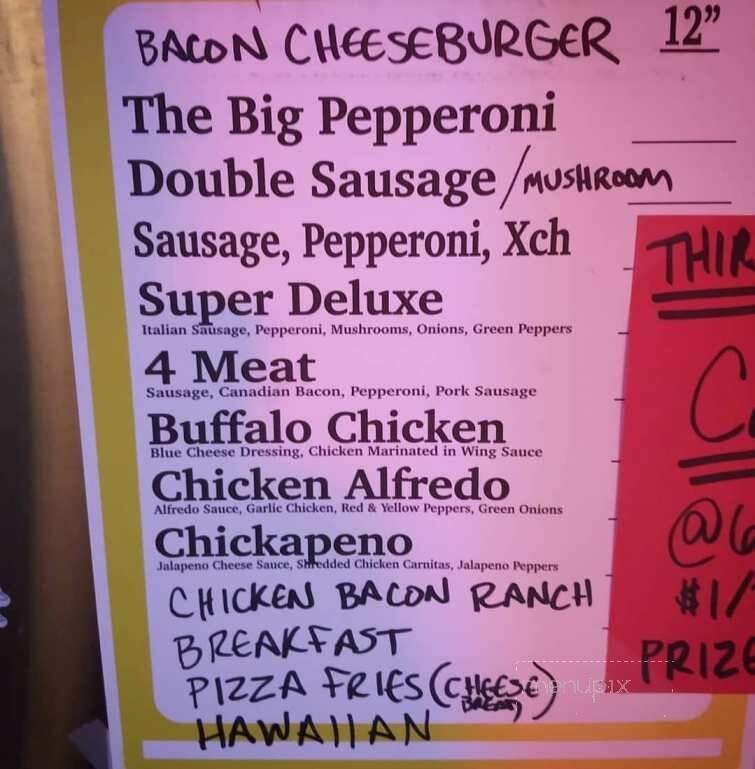 BACON CHEESEBURGER 12”
The Big Pepperoni
Double Sausage/MUSHROOM
Sausage, Pepperoni, Xch
THIR
Super Deluxe
Italian Sausage, Pepperoni, Mushrooms, Onions, Green Peppers
4 Meat
Sausage, Canadian Bacon, Pepperoni, Pork Sausage
Buffalo Chicken
Blue Cheese Dressing, Chicken Marinated in Wing Sauce
Chicken Alfredo
Alfredo Sauce, Garlic Chicken, Red & Yellow Peppers, Green Onions
Chickapeno
Jalapeno Cheese Sauce, Shredded Chicken Carnitas, Jalapeno Peppers
@6
$1/
CHICKEN BACON RANCH
BREAKFAST
PRIZE
PIZZA FRIES (CHEESE BREAD)
menupix
HAWAIIAN